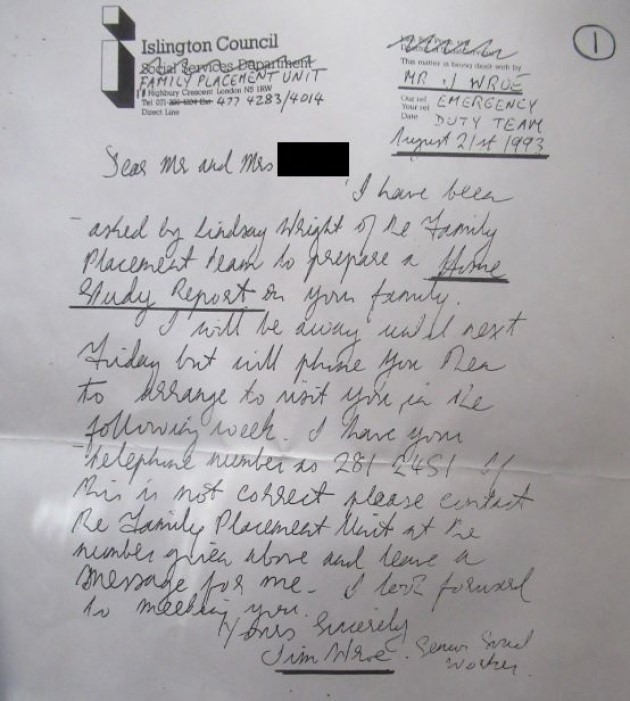 1
Islington Council
Social Services Department
FAMILY PLACEMENT UNIT
Highbury Crescent London N5 1RW
Tel 071 477 4283/4014
Direct Line
This matter is being dealt with by
MR J WROE
Our ref EMERGENCY
Your ref
Date DUTY TEAM
August 21st 1993
Dear Mr and Mrs
I have been
asked by Lindsay Wright of the Family
Placement team to prepare a Home
Study Report on your family.
I will be away until next
Friday but will phone you then
to arrange to visit you in the
following week. I have your
telephone number as 281 2451 If
this is not correct please contact
the Family Placement Unit at the
number given above and leave a
message for me. I look forward
to meeting you.
Yours Sincerely
Jim Wroe. Senior Social
Worker.